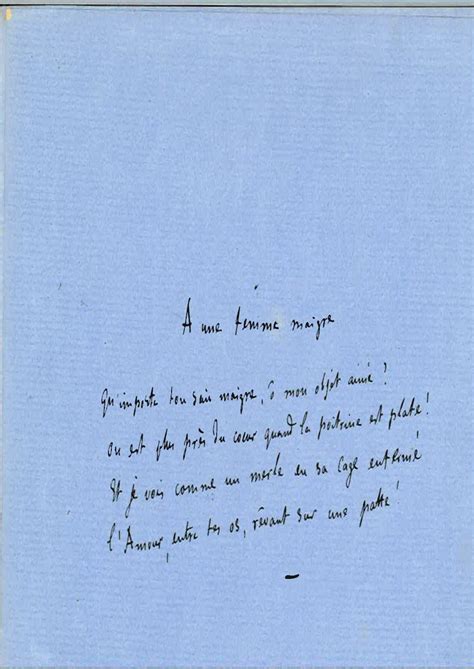 A une femme maigre
Qu'importe ton sein maigre, ô mon objet aimé ?
On est plus près du cœur quand la poitrine est plate !
Et je vois comme un merle en sa cage enfermé
l'Amour, entre tes os, rêvant sur une patte !